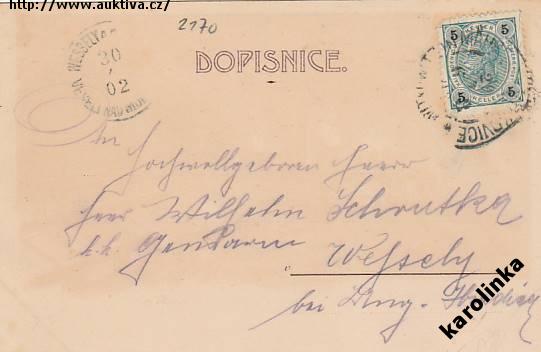 http://www.auktiva.cz/
2170
DOPISNICE.
WESSELY
30
02
5 5
5 5
An
Hochwollgeboren Herr
Herr Wilhelm Schrutka
k.k. Gendarm
Wessely
bei Ung.
karolinka